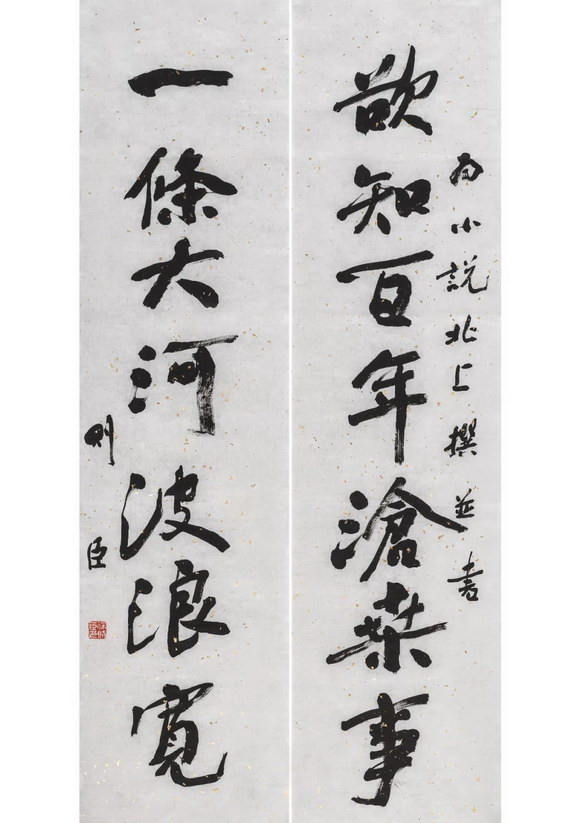 欲知百年滄桑事
為小説北上撰並書
一條大河波浪寬
則臣